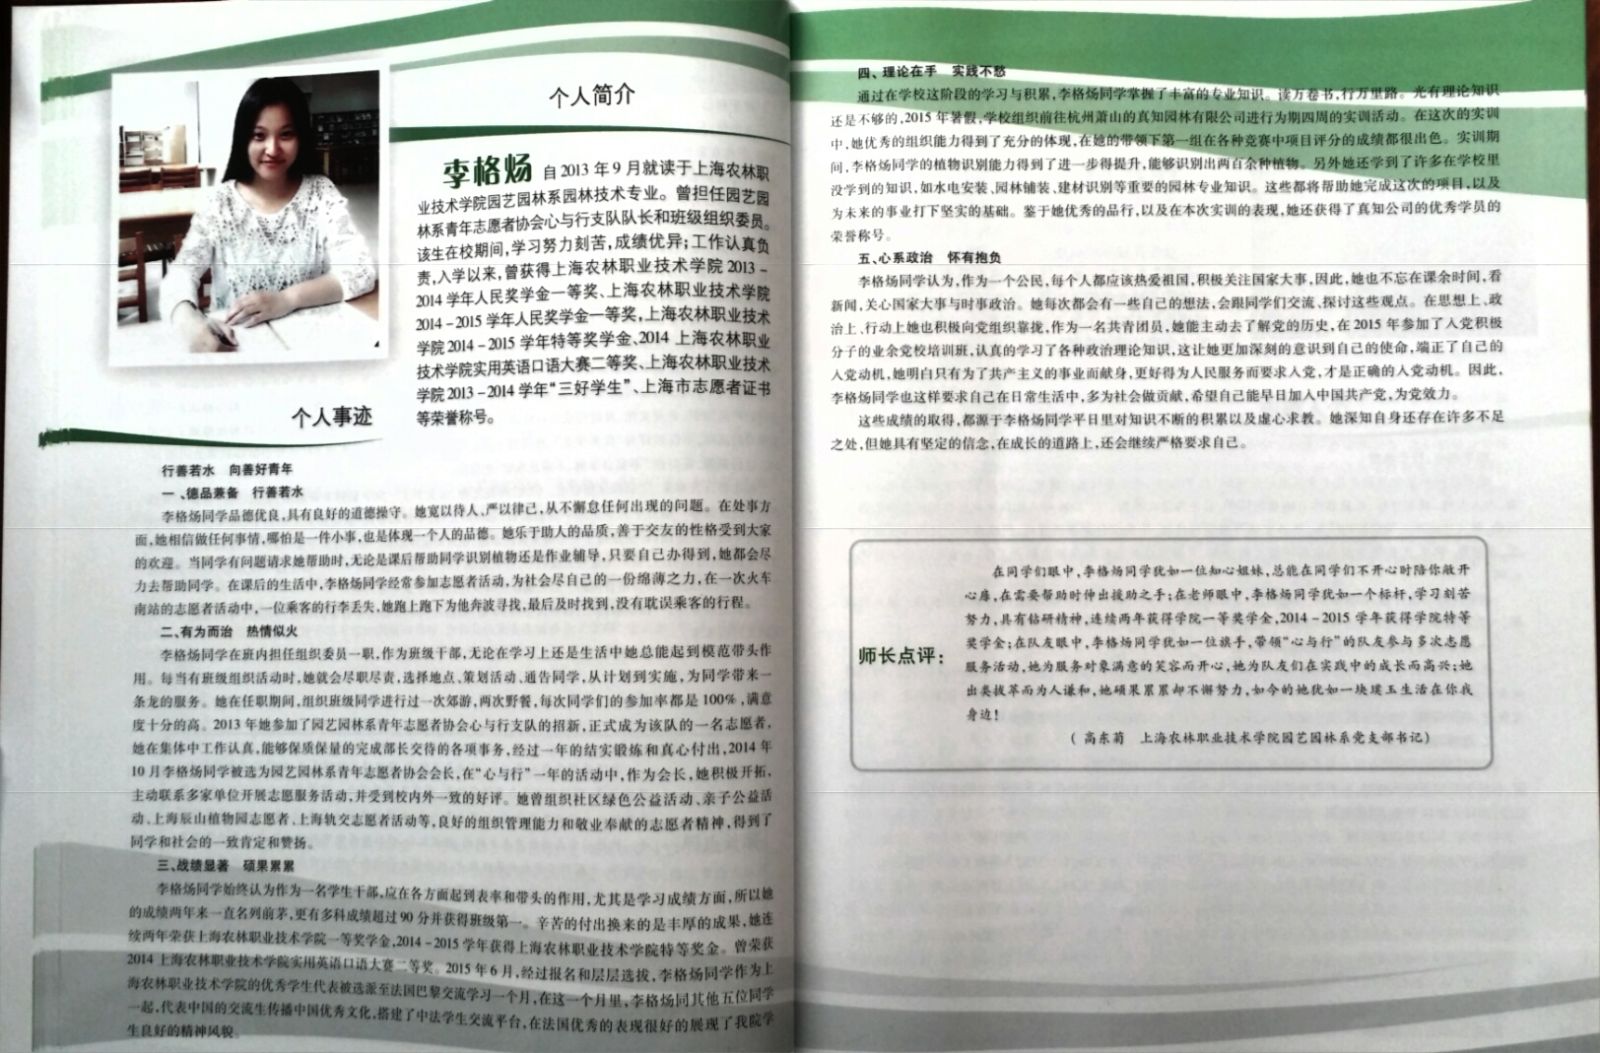 个人简介
李格炀 自2013年9月就读于上海农林职
业技术学院园艺园林系园林技术专业。曾担任园艺园
林系青年志愿者协会心与行支队队长和班级组织委员。
该生在校期间,学习努力刻苦,成绩优异;工作认真负
责,入学以来,曾获得上海农林职业技术学院2013-
2014学年人民奖学金一等奖、上海农林职业技术学院
2014-2015学年人民奖学金一等奖,上海农林职业技术
学院2014-2015学年特等奖学金、2014上海农林职业
技术学院实用英语口语大赛二等奖、上海农林职业技术
学院2013-2014学年“三好学生”、上海市志愿者证书
等荣誉称号。
个人事迹
行善若水 向善好青年
一、德品兼备 行善若水
李格炀同学品德优良,具有良好的道德操守。她宽以待人、严以律己,从不懈怠任何出现的问题。在处事方
面,她相信做任何事情,哪怕是一件小事,也是体现一个人的品德。她乐于助人的品质,善于交友的性格受到大家
的欢迎。当同学有问题请求她帮助时,无论是课后帮助同学识别植物还是作业辅导,只要自己办得到,她都会尽
力去帮助同学。在课后的生活中,李格炀同学经常参加志愿者活动,为社会尽自己的一份绵薄之力,在一次火车
南站的志愿者活动中,一位乘客的行李丢失,她跑上跑下为他奔波寻找,最后及时找到,没有耽误乘客的行程。
二、有为而治 热情似火
李格炀同学在班内担任组织委员一职,作为班级干部,无论在学习上还是生活中她总能起到模范带头作
用。每当有班级组织活动时,她就会尽职尽责,选择地点、策划活动、通告同学,从计划到实施,为同学带来一
条龙的服务。她在任职期间,组织班级同学进行过一次郊游,两次野餐,每次同学们的参加率都是100%,满意
度十分的高。2013年她参加了园艺园林系青年志愿者协会心与行支队的招新,正式成为该队的一名志愿者,
她在集体中工作认真,能够保质保量的完成部长交待的各项事务,经过一年的结实锻炼和真心付出,2014年
10月李格炀同学被选为园艺园林系青年志愿者协会会长,在“心与行”一年的活动中,作为会长,她积极开拓,
主动联系多家单位开展志愿服务活动,并受到校内外一致的好评。她曾组织社区绿色公益活动、亲子公益活
动、上海辰山植物园志愿者、上海轨交志愿者活动等,良好的组织管理能力和敬业奉献的志愿者精神,得到了
同学和社会的一致肯定和赞扬。
三、战绩显著 硕果累累
李格炀同学始终认为作为一名学生干部,应在各方面起到表率和带头的作用,尤其是学习成绩方面,所以她
的成绩两年来一直名列前茅,更有多科成绩超过90分并获得班级第一。辛苦的付出换来的是丰厚的成果,她连
续两年荣获上海农林职业技术学院一等奖学金,2014-2015学年获得上海农林职业技术学院特等奖金。曾荣获
2014上海农林职业技术学院实用英语口语大赛二等奖。2015年6月,经过报名和层层选拔,李格炀同学作为上
海农林职业技术学院的优秀学生代表被选派至法国巴黎交流学习一个月,在这一个月里,李格炀同其他五位同学
一起,代表中国的交流生传播中国优秀文化,搭建了中法学生交流平台,在法国优秀的表现很好的展现了我院学
生良好的精神风貌。
四、理论在手 实践不愁
通过在学校这阶段的学习与积累,李格炀同学掌握了丰富的专业知识。读万卷书,行万里路。光有理论知识
还是不够的,2015年暑假,学校组织前往杭州萧山的真知园林有限公司进行为期四周的实训活动。在这次的实训
中,她优秀的组织能力得到了充分的体现,在她的带领下第一组在各种竞赛中项目评分的成绩都很出色。实训期
间,李格炀同学的植物识别能力得到了进一步得提升,能够识别出两百余种植物。另外她还学到了许多在学校里
没学到的知识,如水电安装、园林铺装、建材识别等重要的园林专业知识。这些都将帮助她完成这次的项目,以及
为未来的事业打下坚实的基础。鉴于她优秀的品行,以及在本次实训的表现,她还获得了真知公司的优秀学员的
荣誉称号。
五、心系政治 怀有抱负
李格炀同学认为,作为一个公民,每个人都应该热爱祖国,积极关注国家大事,因此,她也不忘在课余时间,看
新闻,关心国家大事与时事政治。她每次都会有一些自己的想法,会跟同学们交流、探讨这些观点。在思想上、政
治上、行动上她也积极向党组织靠拢,作为一名共青团员,她能主动去了解党的历史,在2015年参加了入党积极
分子的业余党校培训班,认真的学习了各种政治理论知识,这让她更加深刻的意识到自己的使命,端正了自己的
入党动机,她明白只有为了共产主义的事业而献身,更好得为人民服务而要求入党,才是正确的入党动机。因此,
李格炀同学也这样要求自己在日常生活中,多为社会做贡献,希望自己能早日加入中国共产党,为党效力。
这些成绩的取得,都源于李格炀同学平日里对知识不断的积累以及虚心求教。她深知自身还存在许多不足
之处,但她具有坚定的信念,在成长的道路上,还会继续严格要求自己。
师长点评:
在同学们眼中,李格炀同学犹如一位知心姐妹,总能在同学们不开心时陪你敞开
心扉,在需要帮助时伸出援助之手;在老师眼中,李格炀同学犹如一个标杆,学习刻苦
努力,具有钻研精神,连续两年获得学院一等奖学金,2014-2015学年获得学院特等
奖学金;在队友眼中,李格炀同学犹如一位旗手,带领“心与行”的队友参与多次志愿
服务活动,她为服务对象满意的笑容而开心,她为队友们在实践中的成长而高兴;她
出类拔萃而为人谦和,她硕果累累却不懈努力,如今的她犹如一块璞玉生活在你我
身边!
(高东菊 上海农林职业技术学院园艺园林系党支部书记)